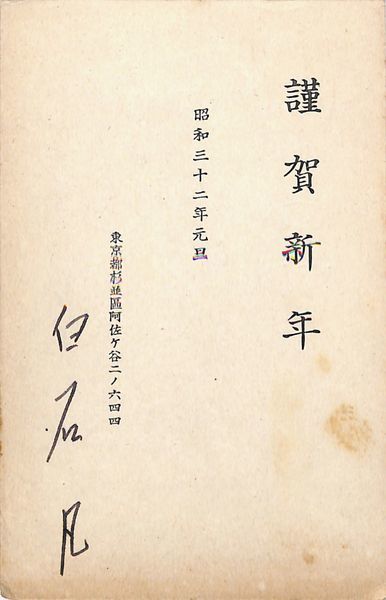 謹賀新年
昭和三十二年元旦
東京都杉並區阿佐ケ谷二ノ六四四
白石凡